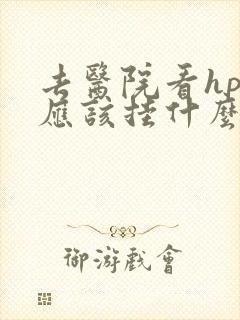 去醫院看hp
應該挂什麼
御游戲會